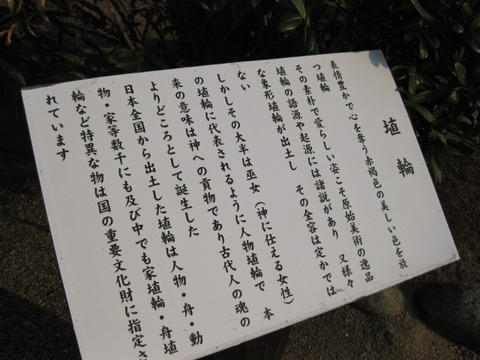 埴輪
表情豊かで心を奪う赤褐色の美しい色を放
つ埴輪
その素朴で愛らしい姿こそ原始美術の逸品
埴輪の語源や起源には諸説があり　又様々
な象形埴輪が出土し　その全容は定かでは
ない
しかしその大半は巫女（神に仕える女性）
の埴輪に代表されるように人物埴輪で　本
来の意味は神への貢物であり古代人の魂の
よりどころとして誕生した
日本全国から出土した埴輪は人物・舟・動
物・家等数千にも及び中でも家埴輪・舟埴
輪など特異な物は国の重要文化財に指定さ
れています